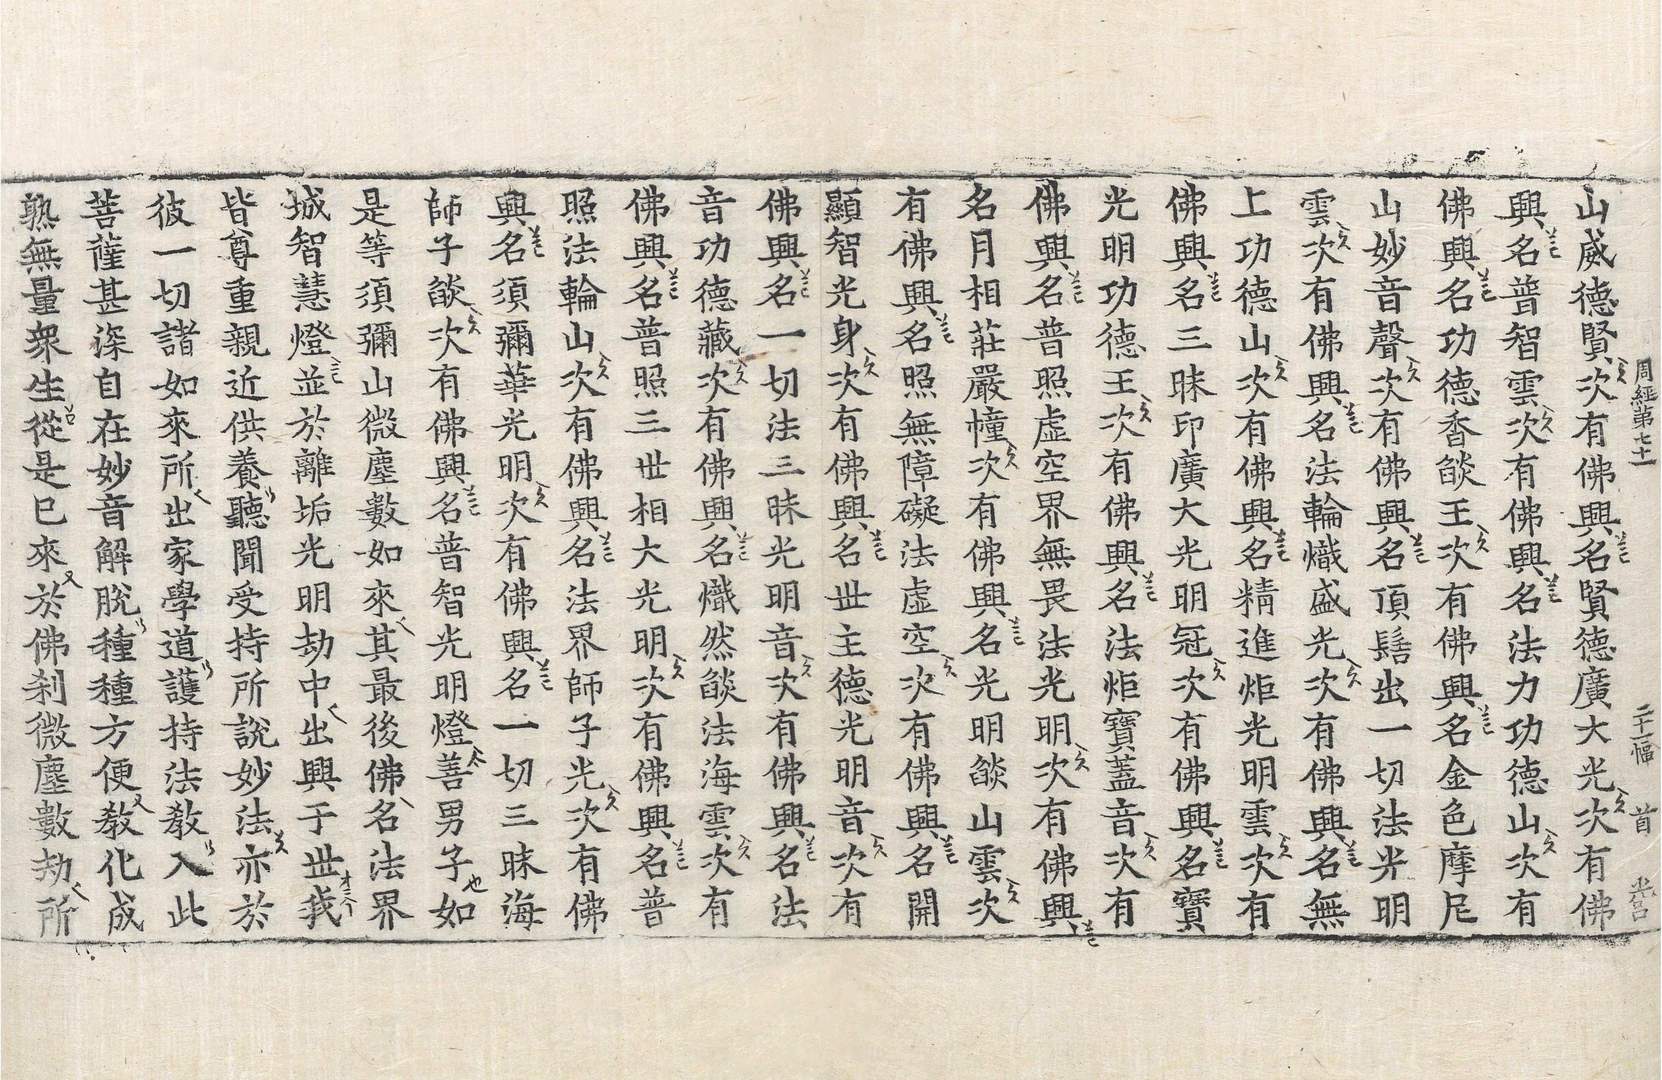 周經第七十一 二十一幅 首
山威德賢次有佛興名賢德廣大光次有佛
興名普智雲次有佛興名法力功德山次有
佛興名功德香燄王次有佛興名金色摩尼
山妙音聲次有佛興名頂髻出一切法光明
雲次有佛興名法輪熾盛光次有佛興名無
上功德山次有佛興名精進炬光明雲次有
佛興名三昧印廣大光明冠次有佛興名寶
光明功德王次有佛興名法炬寶蓋音次有
佛興名普照虛空界無畏法光明次有佛興
名月相莊嚴幢次有佛興名光明燄山雲次
有佛興名照無障礙法虛空次有佛興名開
顯智光身次有佛興名世主德光明音次有
佛興名一切法三昧光明音次有佛興名法
音功德藏次有佛興名熾然燄法海雲次有
佛興名普照三世相大光明次有佛興名普
照法輪山次有佛興名法界師子光次有佛
興名須彌華光明次有佛興名一切三昧海
師子燄次有佛興名普智光明燈善男子如
是等須彌山微塵數如來其最後佛名法界
城智慧燈並於離垢光明劫中出興于世我
皆尊重親近供養聽聞受持所說妙法亦於
彼一切諸如來所出家學道護持法教入此
菩薩甚深自在妙音解脫種種方便教化成
熟無量衆生從是已來於佛剎微塵數劫所